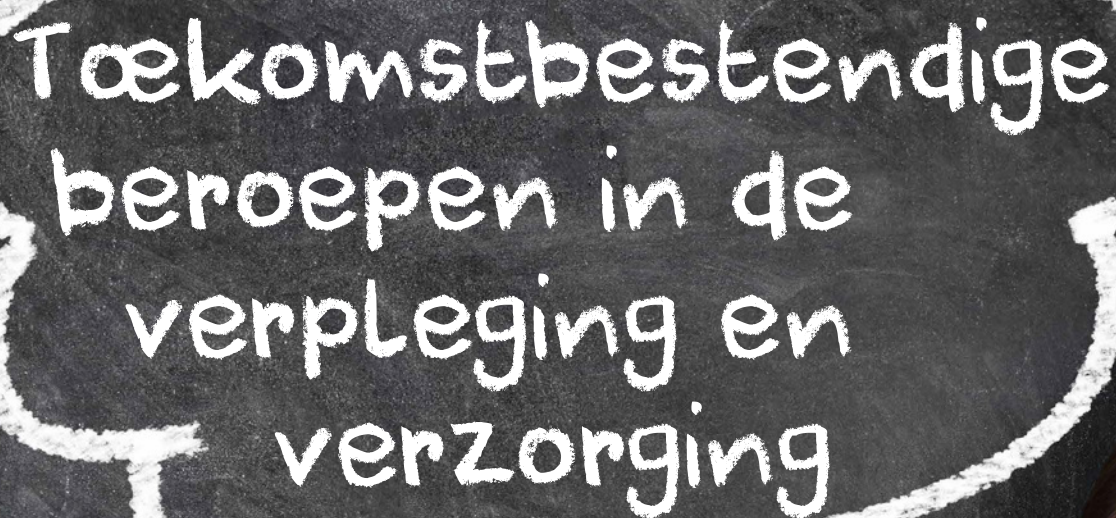 Toekomstbestendige
beroepen in de
verpleging en
verzorging